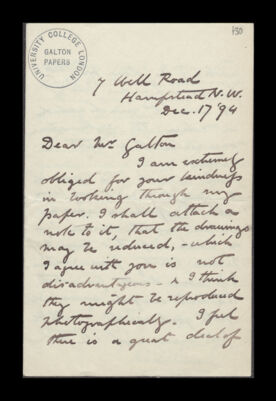 150
UNIVERSITY COLLEGE LONDON
GALTON
PAPERS
7 Well Road
Hampstead N.W.
Dec. 17 '94
Dear Mr Galton
I am extremely
obliged for your kindness
in looking through my
paper. I shall attach a
note to it, that the drawings
may be reduced, - which
I agree with you is not
disadvantageous - & I think
they might be reproduced
photographically. I feel
there is a great deal of